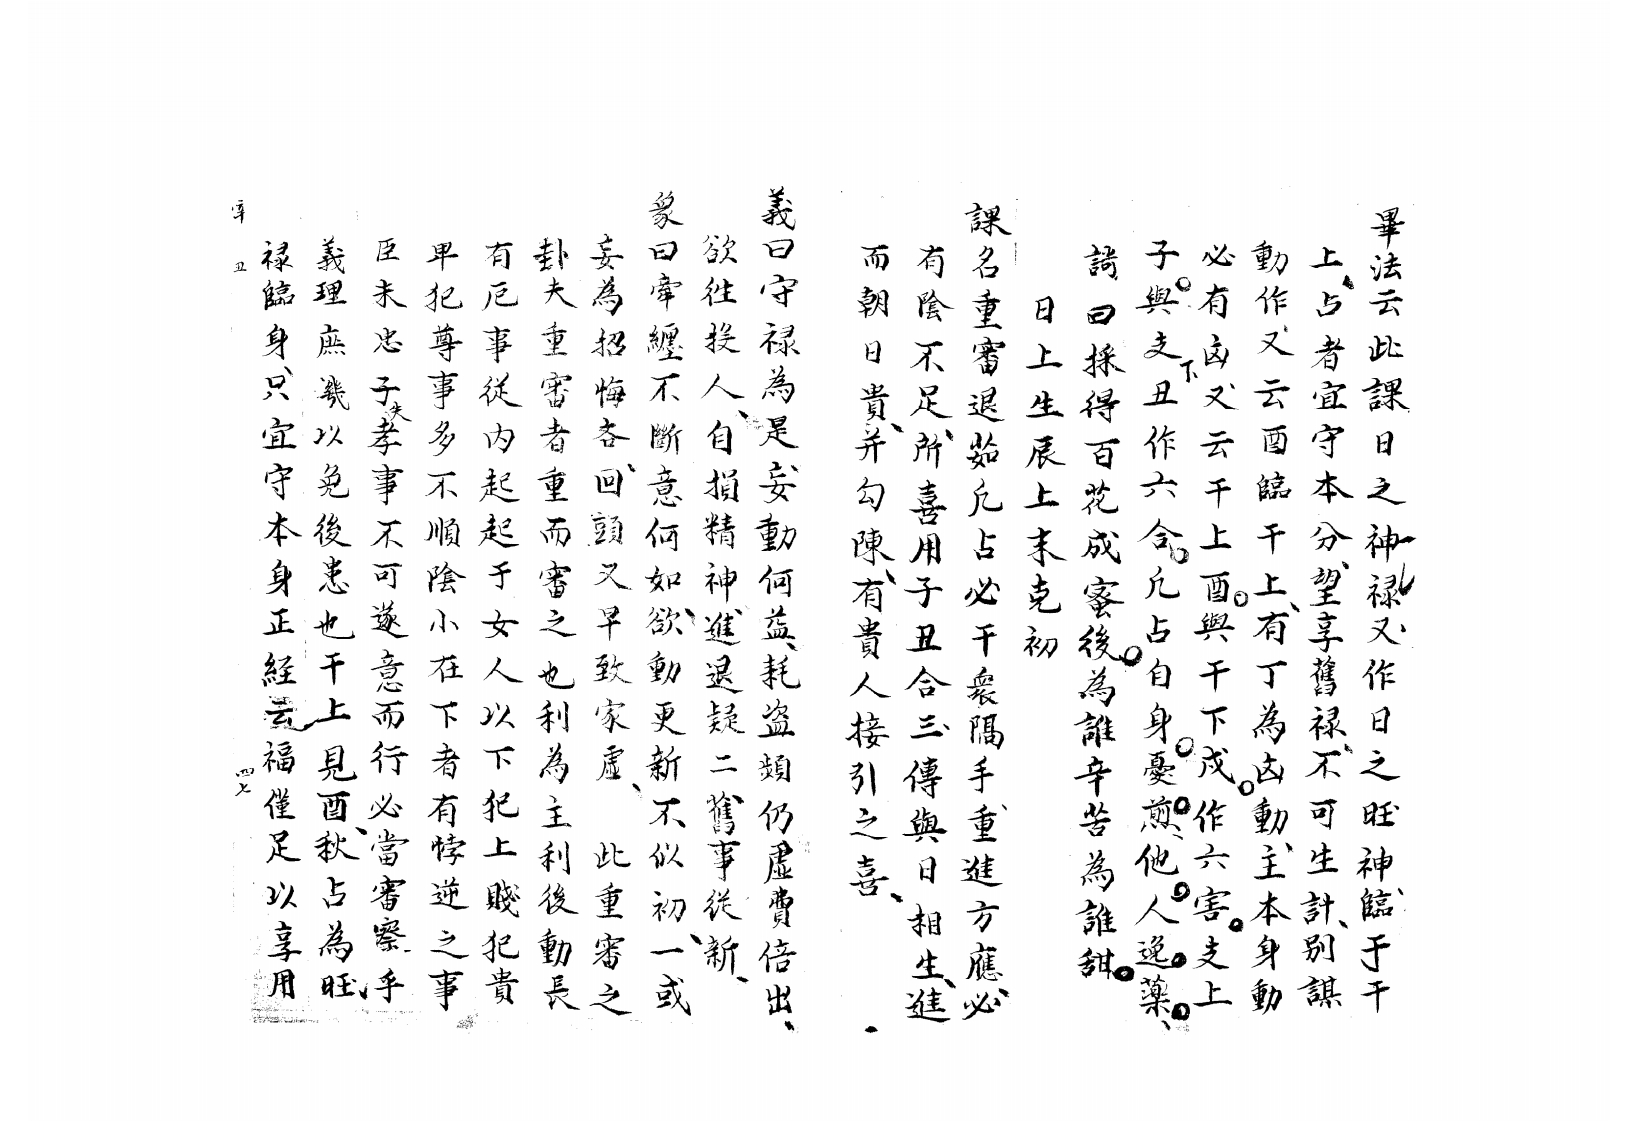 畢法云此課日之神禄又作日之旺神臨于干
上占者宜守本分望享舊禄不可生計别謀
動作又云酉臨干上有丁為凶動主本身動
必有凶又云干上酉與干下戌作六害支上
子與支下丑作六合凢占自身憂煎他人逸藥
詩曰採得百花成蜜後為誰辛苦為誰甜
日上生辰上末克初
課名重審退茹凢占必干衆隅手重進方應必
有陰不足所喜用子丑合三傳與日相生進
而朝日貴并勾陳有貴人接引之喜
義曰守禄為是妄動何益耗盗頻仍虚費倍出
欲徃投人自損精神進退疑二舊事從新
象曰牽纏不斷意何如欲動更新不似初一或
妄為招悔吝回頭又早致家虚 此重審之
卦夫重審者重而審之也利為主利後動長
有厄事從内起起于女人以下犯上賤犯貴
卑犯尊事多不順陰小在下者有悖逆之事
臣未忠子失孝事不可遂意而行必當審察乎
義理庶幾以免後患也干上見酉秋占為旺
禄臨身只宜守本身正経云福僅足以享用
辛丑 四七